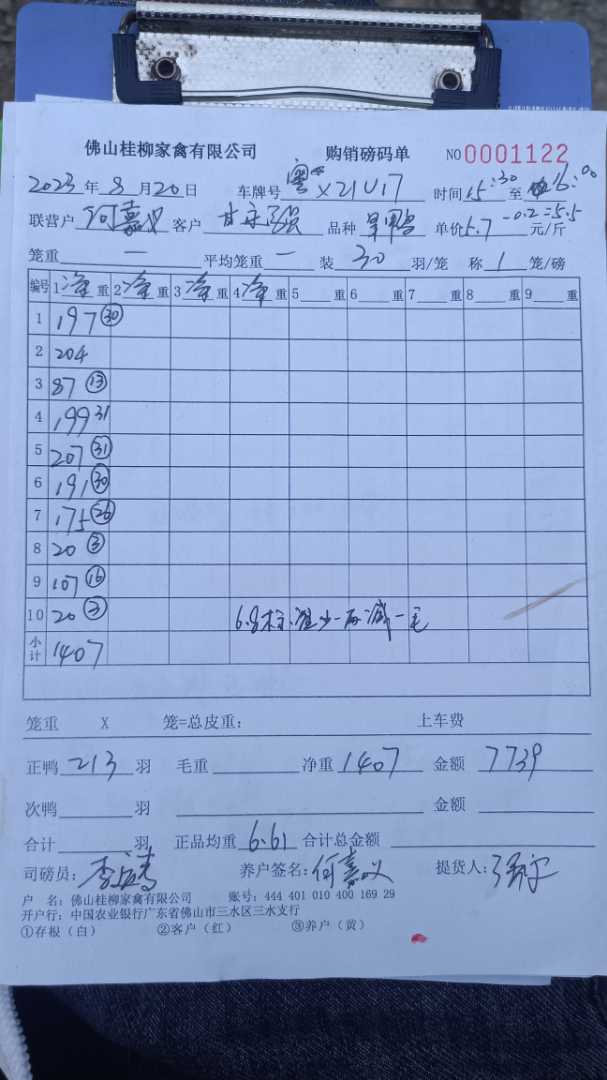 佛山桂柳家禽有限公司 购销磅码单 NO 0001122
2023年8月20日 车牌号 粤X21U17 时间 15:30 至 16:00
联营户 何嘉义 客户 品种 旱鸭 单价 5.7 -0.2=5.5 元/斤
笼重 — 平均笼重 — 装 30 羽/笼 称 1 笼/磅
编号 1 净 重 2 净 重 3 净 重 4 净 重 5 重 6 重 7 重 8 重 9 重
1 197 ㉚
2 204
3 87 ⑬
4 199 31
5 207 ㉛
6 191 ㉚
7 175 ㉖
8 20 ③
9 107 ⑯
10 20 ③ 6.8标准少一两减一毛
小计 1407
笼重 X 笼=总皮重: 上车费
正鸭 213 羽 毛重 净重 1407 金额 7739
次鸭 羽 金额
合计 羽 正品均重 6.61 合计总金额
司磅员: 养户签名: 何嘉义 提货人:
户 名: 佛山桂柳家禽有限公司 账号: 444 401 010 400 169 29
开户行: 中国农业银行广东省佛山市三水区三水支行
①存根(白) ②客户(红) ③养户(黄)